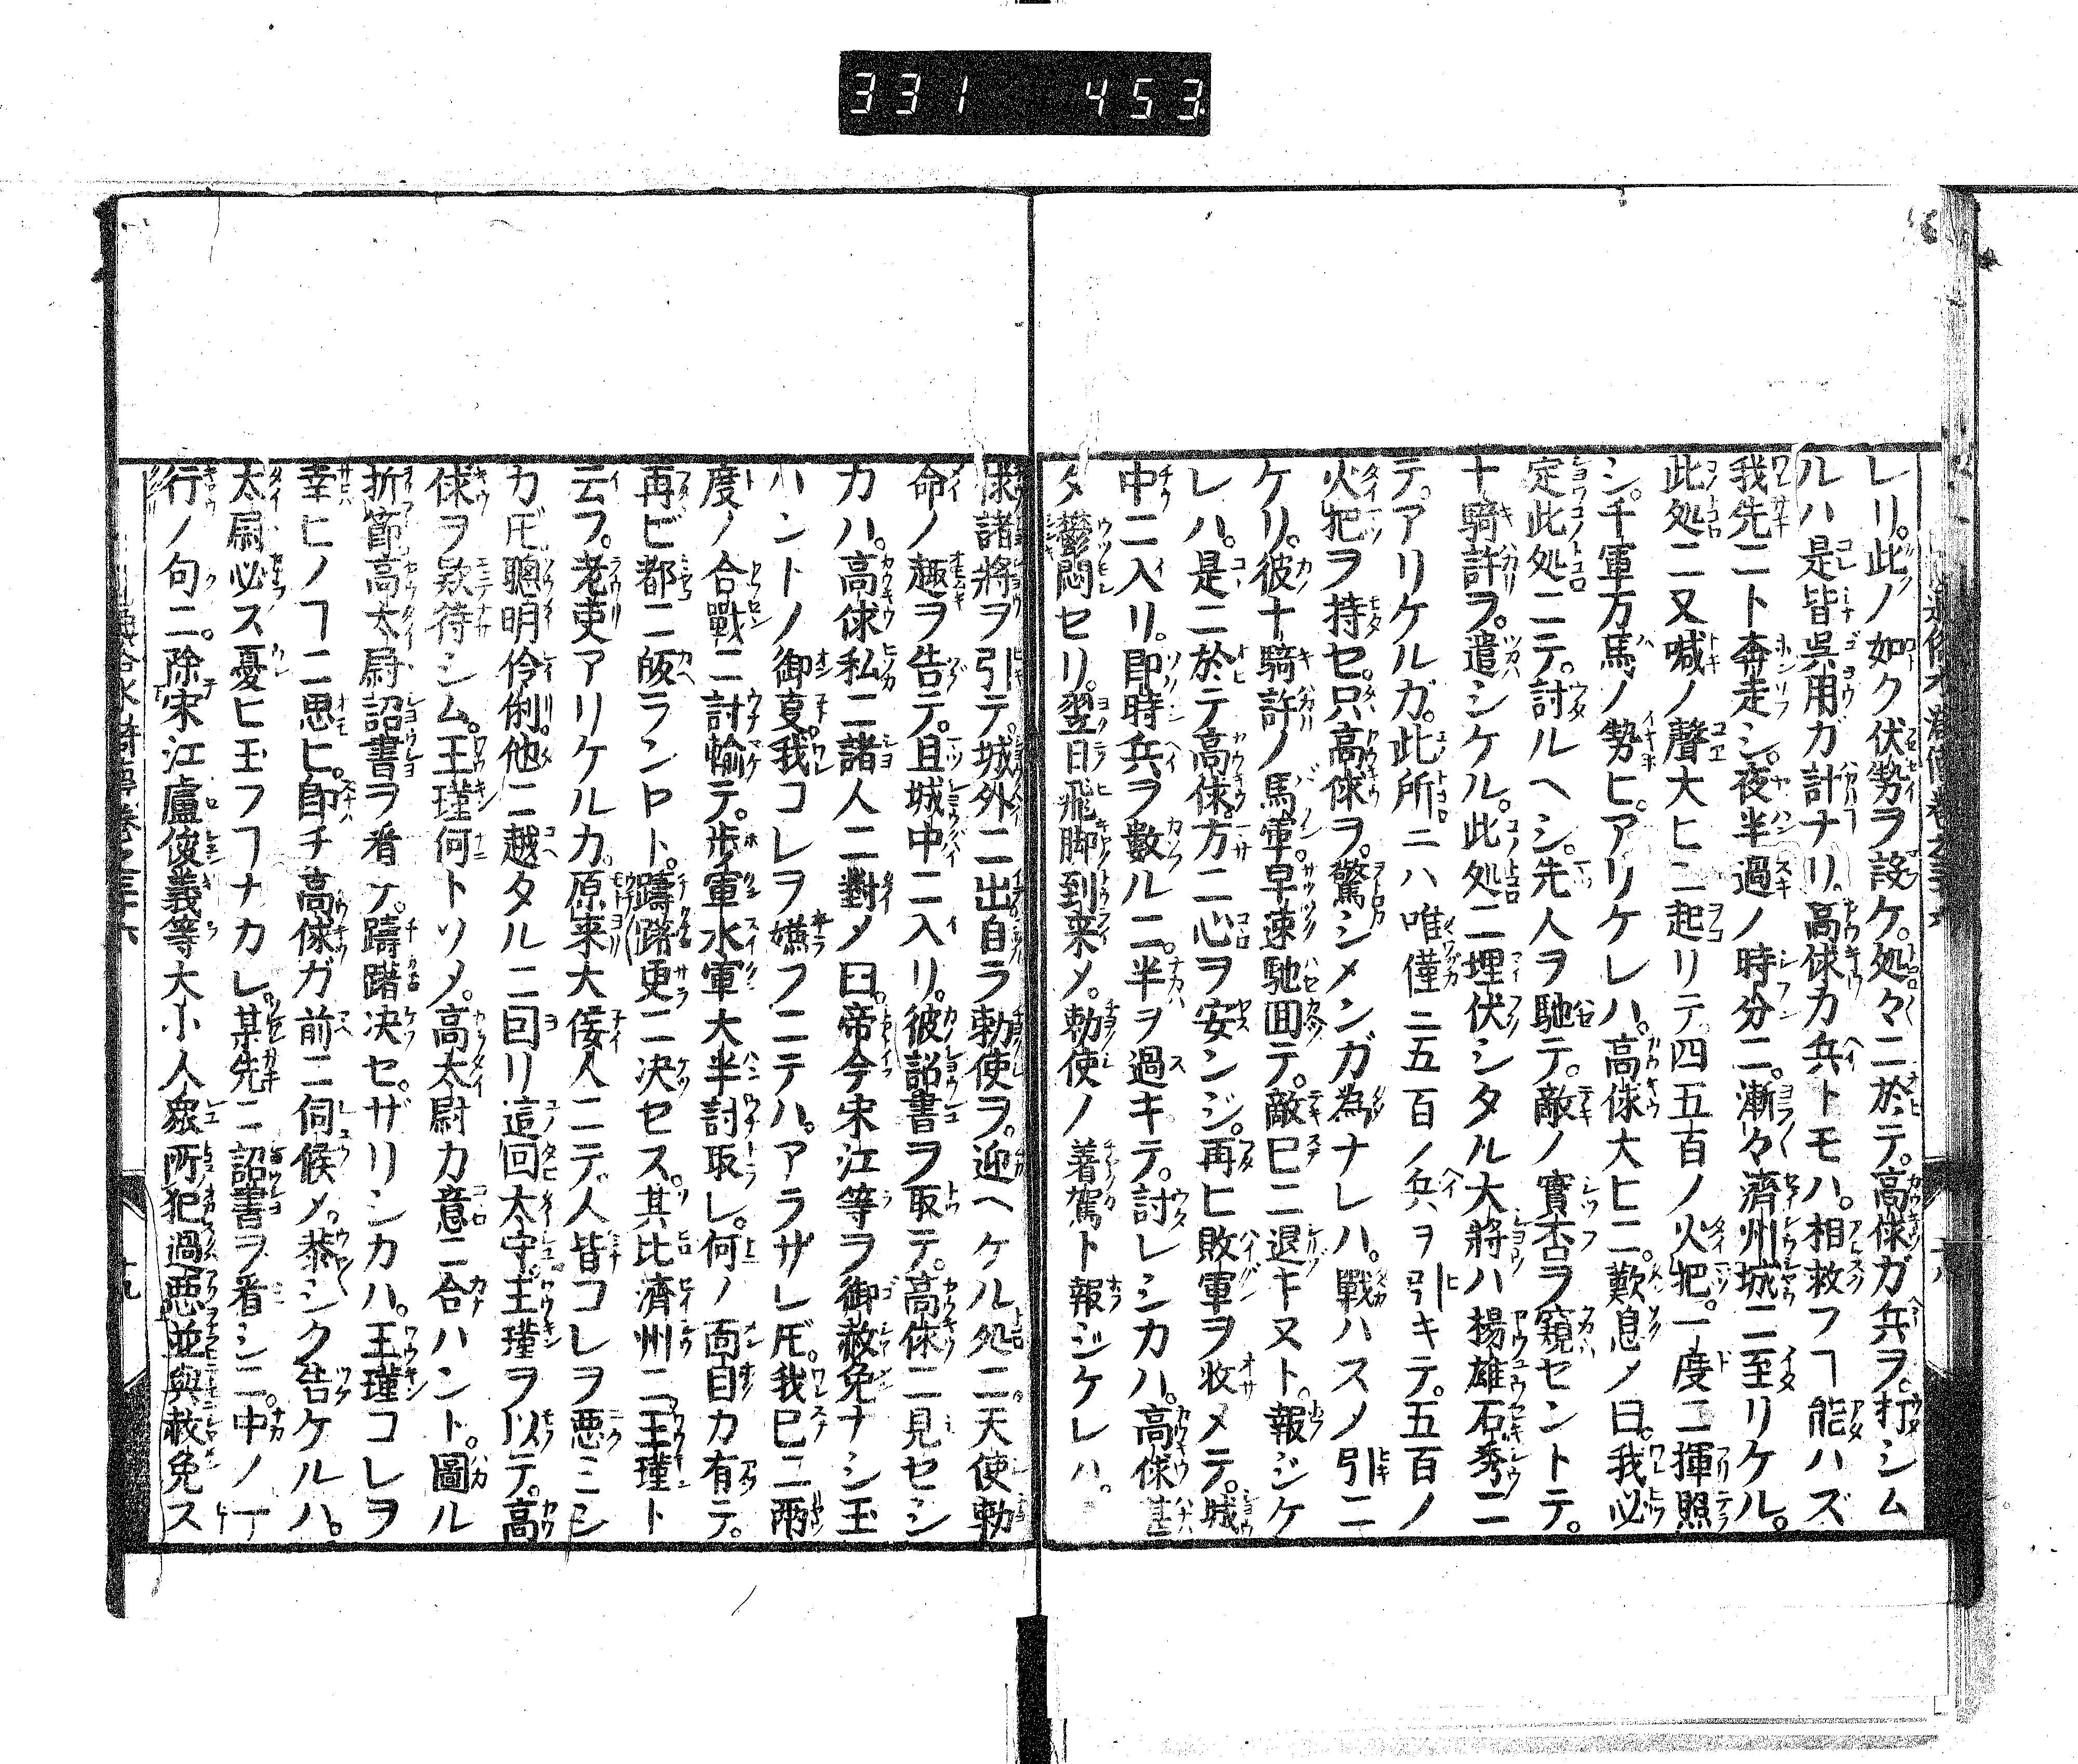 331 453
レリ。此ノ如ク伏勢ヲ設ケ。処々ニ於テ。高俅ガ兵ヲ。打シム
ルハ是皆呉用ガ計ナリ。高俅カ兵トモハ。相救フヿ能ハズ
我先ニト奔走シ。夜半過ノ時分ニ。漸々濟州城ニ至リケル。
此処ニ又喊ノ聲大ヒニ起リテ四五百ノ火把。一度ニ揮照
シ。千軍万馬ノ勢ヒ。アリケレハ。高俅大ヒニ。歎息メ曰。我必
定此処ニテ。討ルヘシ。先人ヲ馳テ。敵ノ實否ヲ窺セントテ。
十騎許ヲ。遣シケル。此処ニ埋伏シタル大將ハ楊雄石秀ニ
テ。アリケルガ。此所ニハ唯僅ニ五百ノ兵ヲ引キテ。五百ノ
火把ヲ持セ。只高俅ヲ。驚シメンガ為ナレハ。戰ハスメ引ニ
ケリ。彼十騎許ノ馬軍。早速馳回テ。敵已ニ退キヌト。報ジケ
レハ。是ニ於テ高俅。方ニ心ヲ安ンジ。再ヒ敗軍ヲ收メテ。城
中ニ入リ。即時兵ヲ數ルニ。半ヲ過キテ。討レシカハ。高俅甚
タ鬱悶セリ。翌日飛脚到来メ。勅使ノ着駕ト報ジケレハ。
俅諸將ヲ引テ。城外ニ出自ラ勅使ヲ。迎ヘケル処ニ天使勅
命ノ趣ヲ告テ。且城中ニ入リ。彼詔書ヲ取テ。高俅ニ見セシ
カハ。高俅私ニ諸人ニ對メ曰。帝今宋江等ヲ御赦免ナシ玉
ハントノ御夏。我コレヲ嫌フニテハ。アラザレ𪜈。我已ニ兩
度ノ合戰ニ討輸テ。歩軍水軍大半討取レ。何ノ面目カ有テ。
再ビ都ニ皈ランヤト。躊躇更ニ決セス。其比濟州ニ王瑾ト
云フ。老吏アリケルカ。原来大倭人ニテ。人皆コレヲ惡ミシ
カ𪜈聰明伶俐。他ニ越タルニ囙リ這回太守。王瑾ヲ以テ。高
俅ヲ欵待シム。王瑾何トソメ。高太尉カ意ニ合ハント。圖ル
折節高太尉詔書ヲ看ケ。躊躇决セ。ザリシカハ。王瑾コレヲ
幸ヒノヿニ思ヒ。即チ高俅ガ前ニ伺候メ。恭シク告ケルハ。
太尉必ス憂ヒ玉フヿナカレ。某先ニ詔書ヲ看シニ。中ノ一
行ノ句ニ。除宋江盧俊義等大小人衆所犯過惡並與赦免ス